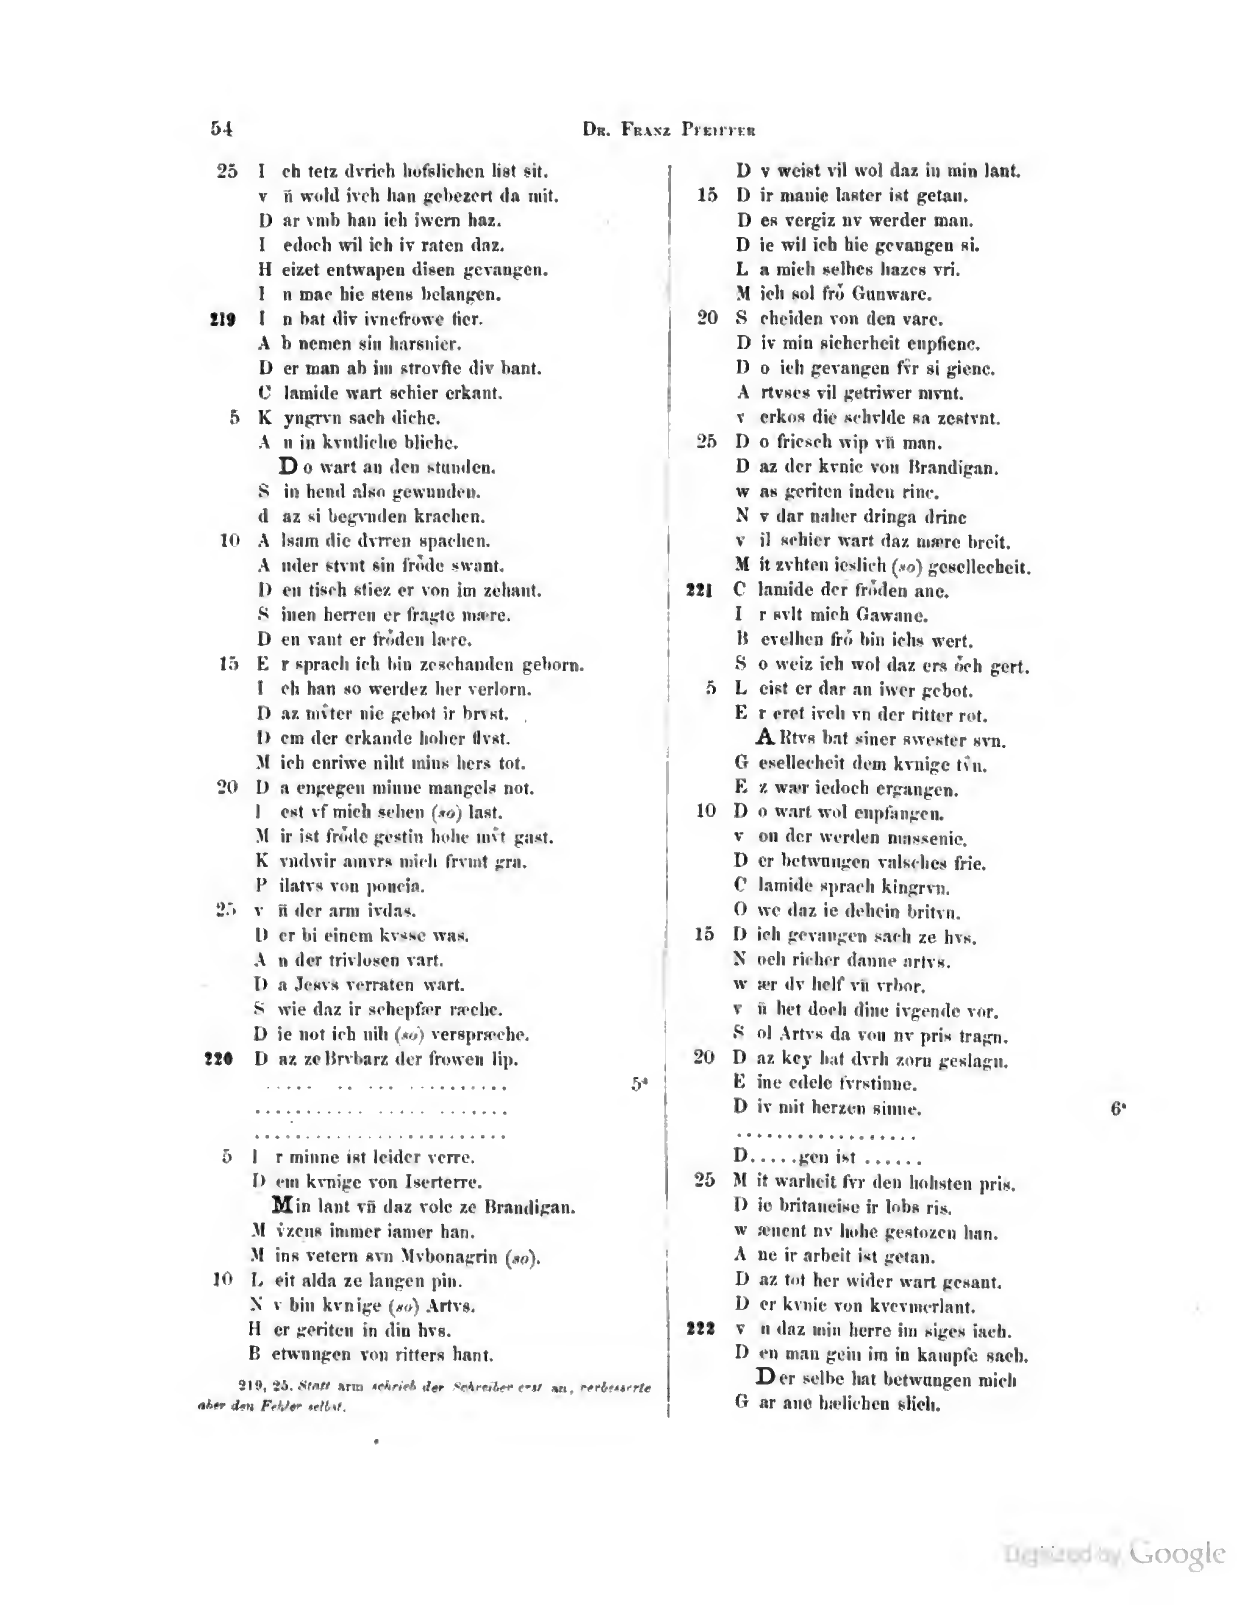 54
DR. FRANZ PFEIFFER
25 I ch tetz dvrich hofslichen list sit.
v n̄ wold ivch han gebezert da mit.
D ar vmb han ich iwern haz.
I edoch wil ich iv raten daz.
H eizet entwapen disen gevangen.
I n mac hie stens belangen.
219 I n bat div ivncfrowe fier.
A b nemen sin harsnier.
D er man ab im strovfte div bant.
C lamide wart schier erkant.
5 K yngrvn sach diche.
A n in kvntliche bliche.
D o wart an den stunden.
S in hend also gewunden.
d az si begvnden krachen.
10 A lsam die dvrren spachen.
A nder stvnt sin frǒde swant.
D en tisch stiez er von im zehant.
S inen herren er fragte mære.
D en vant er frǒden lære.
15 E r sprach ich bin zeschanden geborn.
I ch han so werdez her verlorn.
D az mv̊ter nie gebot ir brvst.
D em der erkande hoher flvst.
M ich enriwe niht mins hers tot.
20 D a engegen minne mangels not.
I est vf mich sehen (so) last.
M ir ist frǒde gestin hohe mv̊t gast.
K vndwir amvrs mich frvmt gra.
P ilatvs von poncia.
25 v n̄ der arm ivdas.
D er bi einem kvsse was.
A n der trivlosen vart.
D a Jesvs verraten wart.
S wie daz ir schepfær ræche.
D ie not ich nih (so) verspræche.
220 D az ze Brvbarz der frowen lip.
..... .. ... .......... 5ᵃ
........... ...... .......
.........................
5 I r minne ist leider verre.
D em kvnige von Iserterre.
Min lant vn̄ daz volc ze Brandigan.
M v̊zens immer iamer han.
M ins vetern svn Mvbonagrin (so).
10 L eit alda ze langen pin.
N v bin kvnige (so) Artvs.
H er geriten in din hvs.
B etwungen von ritters hant.
219, 25. Statt arm schrieb der Schreiber erst an, verbesserte
aber den Fehler selbst.
D v weist vil wol daz in min lant.
15 D ir manic laster ist getan.
D es vergiz nv werder man.
D ie wil ich hie gevangen si.
L a mich selhes hazes vri.
M ich sol frǒ Gunware.
20 S cheiden von den vare.
D iv min sicherheit enpfienc.
D o ich gevangen fv̊r si gienc.
A rtvses vil getriwer mvnt.
v erkos die schvlde sa zestvnt.
25 D o friesch wip vn̄ man.
D az der kvnic von Brandigan.
w as geriten inden rinc.
N v dar naher dringa drinc
v il schier wart daz mære breit.
M it zvhten ieslich (so) gesellecheit.
221 C lamide der frǒden ane.
I r svlt mich Gawane.
B evelhen frǒ bin ichs wert.
S o weiz ich wol daz ers ǒch gert.
5 L eist er dar an iwer gebot.
E r eret ivch vn der ritter rot.
ARtvs bat siner swester svn.
G esellecheit dem kvnige tv̊n.
E z wær iedoch ergangen.
10 D o wart wol enpfangen.
v on der werden massenie.
D er betwungen valsches frie.
C lamide sprach kingrvn.
O we daz ie dehein britvn.
15 D ich gevangen sach ze hvs.
N och richer danne artvs.
w ær dv helf vn̄ vrbor.
v n̄ het doch dine ivgende vor.
S ol Artvs da von nv pris tragn.
20 D az key hat dvrh zorn geslagn.
E ine edele fvrstinne.
D iv mit herzen sinne. 6ᵃ
..................
D.....gen ist ......
25 M it warheit fvr den hohsten pris.
D ie britaneise ir lobs ris.
w ænent nv hohe gestozen han.
A ne ir arbeit ist getan.
D az tot her wider wart gesant.
D er kvnic von kvcvmerlant.
222 v n daz min herre im siges iach.
D en man gein im in kampfe sach.
Der selbe hat betwungen mich
G ar ane hælichen slich.
Digitized by Google